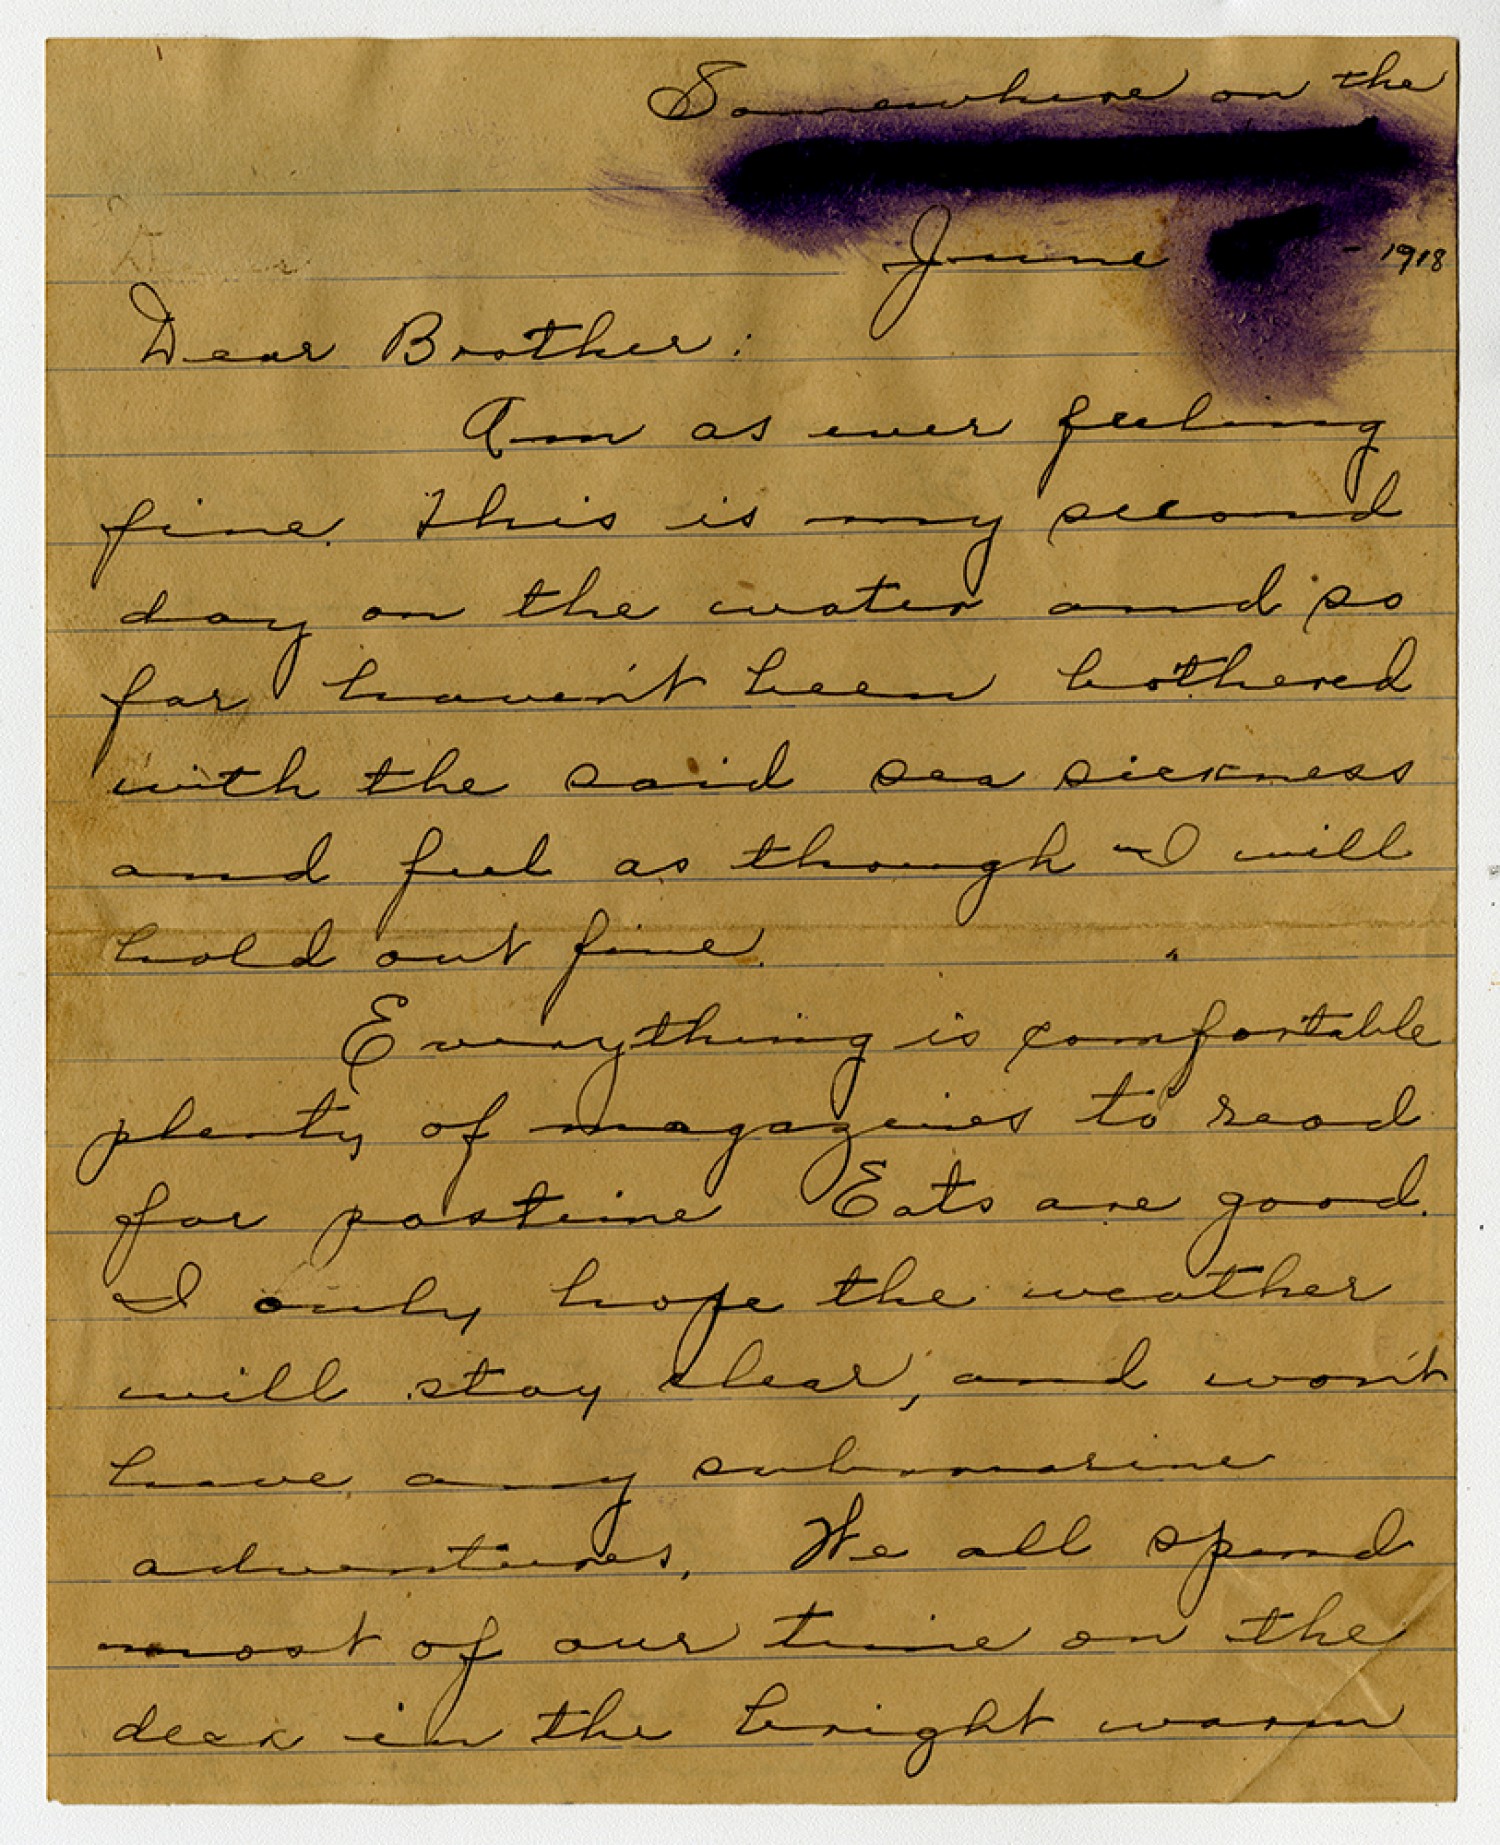 Somewhere on the
June - 1918
Dear Brother:
Am as ever feeling
fine. This is my second
day on the water and so
far haven't been bothered
with the said sea sickness
and feel as though I will
hold out fine.
Everything is comfortable
plenty of magazines to read
for pastime Eats are good.
I only hope the weather
will stay clear, and won't
have any submarine
adventures. We all spend
most of our time on the
deck in the bright warm